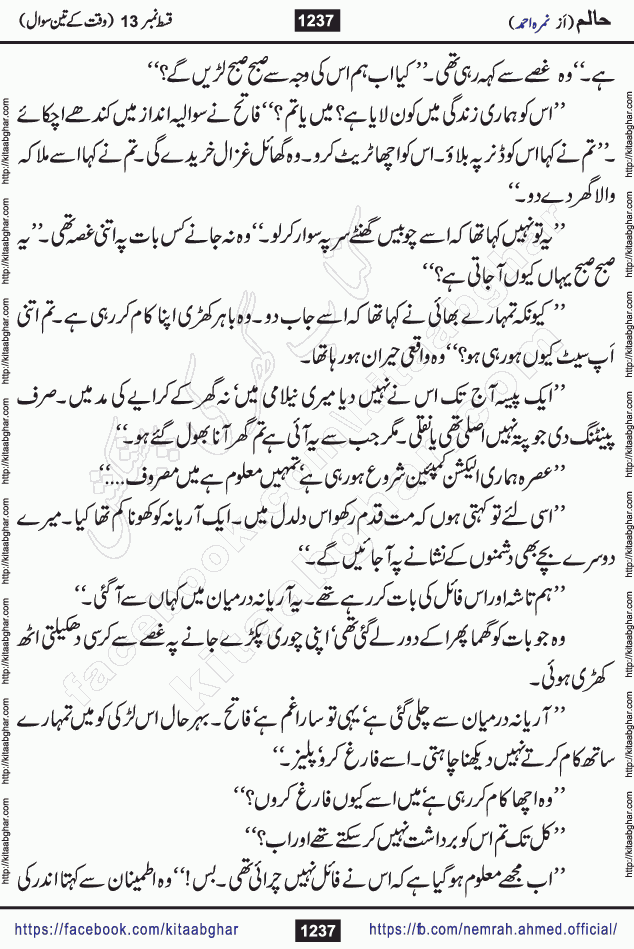 حالم (از نمرہ احمد)
1237
قسط نمبر 13 (وقت کے تین سوال)
ہے۔‘‘وہ غصے سے کہہ رہی تھی۔’’کیا اب ہم اس کی وجہ سے صبح صبح لڑیں گے؟‘‘
’’اس کو ہماری زندگی میں کون لایا ہے؟ میں یا تم؟‘‘ فاتح نے سوالیہ انداز میں کندھے اچکائے
۔’’تم نے کہا اس کو ڈنر پہ بلاؤ۔ اس کو اچھا ٹریٹ کرو۔ وہ گھائل غزال خریدے گی۔ تم نے کہا اسے ملاکہ
والا گھر دے دو۔‘‘
’’یہ تو نہیں کہا تھا کہ اسے چوبیس گھنٹے سر پہ سوار کر لو۔‘‘ وہ نہ جانے کس بات پہ اتنی غصہ تھی۔’’یہ
صبح صبح یہاں کیوں آ جاتی ہے؟‘‘
’’کیونکہ تمہارے بھائی نے کہا تھا کہ اسے جاب دو۔ وہ باہر کھڑی اپنا کام کر رہی ہے۔ تم اتنی
اَپ سیٹ کیوں ہو رہی ہو؟‘‘ وہ واقعی حیران ہو رہا تھا۔
’’ایک پیسہ آج تک اس نے نہیں دیا میری نیلامی میں‘ نہ گھر کے کرایے کی مد میں۔ صرف
پینٹنگ دی جو پتہ نہیں اصلی تھی یا نقلی۔ مگر جب سے یہ آئی ہے تم گھر آنا بھول گئے ہو۔‘‘
’’عصرہ ہماری الیکشن کمپئین شروع ہو رہی ہے‘ تمہیں معلوم ہے میں مصروف....‘‘
’’اسی لئے تو کہتی ہوں کہ مت قدم رکھو اس دلدل میں۔ ایک آریانہ کو کھونا کم تھا کیا۔ میرے
دوسرے بچے بھی دشمنوں کے نشانے پہ آ جائیں گے۔‘‘
’’ہم تاشہ اور اس فائل کی بات کر رہے تھے۔ یہ آریانہ درمیان میں کہاں سے آ گئی۔‘‘
وہ جو بات کو گھما پھرا کے دور لے گئی تھی‘ اپنی چوری پکڑے جانے پہ غصے سے کرسی دھکیلتی اٹھ
کھڑی ہوئی۔
’’آریانہ درمیان سے چلی گئی ہے‘ یہی تو سارا غم ہے‘ فاتح۔ بہرحال اس لڑکی کو میں تمہارے
ساتھ کام کرتے نہیں دیکھنا چاہتی۔ اسے فارغ کرو‘ پلیز۔‘‘
’’وہ اچھا کام کر رہی ہے‘ میں اسے کیوں فارغ کروں؟‘‘
’’کل تک تم اس کو برداشت نہیں کر سکتے تھے اور اب؟‘‘
’’اب مجھے معلوم ہو گیا ہے کہ اس نے فائل نہیں چرائی تھی۔ بس!‘‘ وہ اطمینان سے کہتا اندر کی
https://facebook.com/kitaabghar
1237
https://fb.com/nemrah.ahmed.official/
http://kitaabghar.com